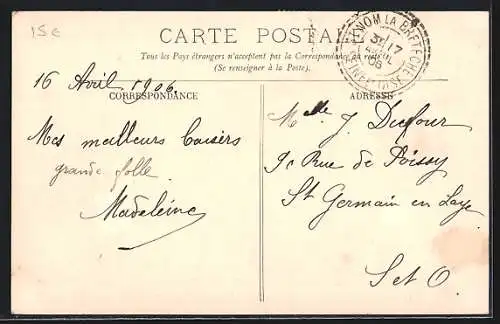 15€
CARTE POSTALE
Tous les Pays étrangers n'acceptent pas la Correspondance au recto
(Se renseigner à la Poste).
NOM LA BRETECHE
17
06
SEINE-ET-OISE
16 Avril 1906
CORRESPONDANCE
ADRESSE
Mes meilleurs baisers
grande folle
Madeleine
Melle J. Dufour
9c Rue de Poissy
St Germain en Laye
S et O